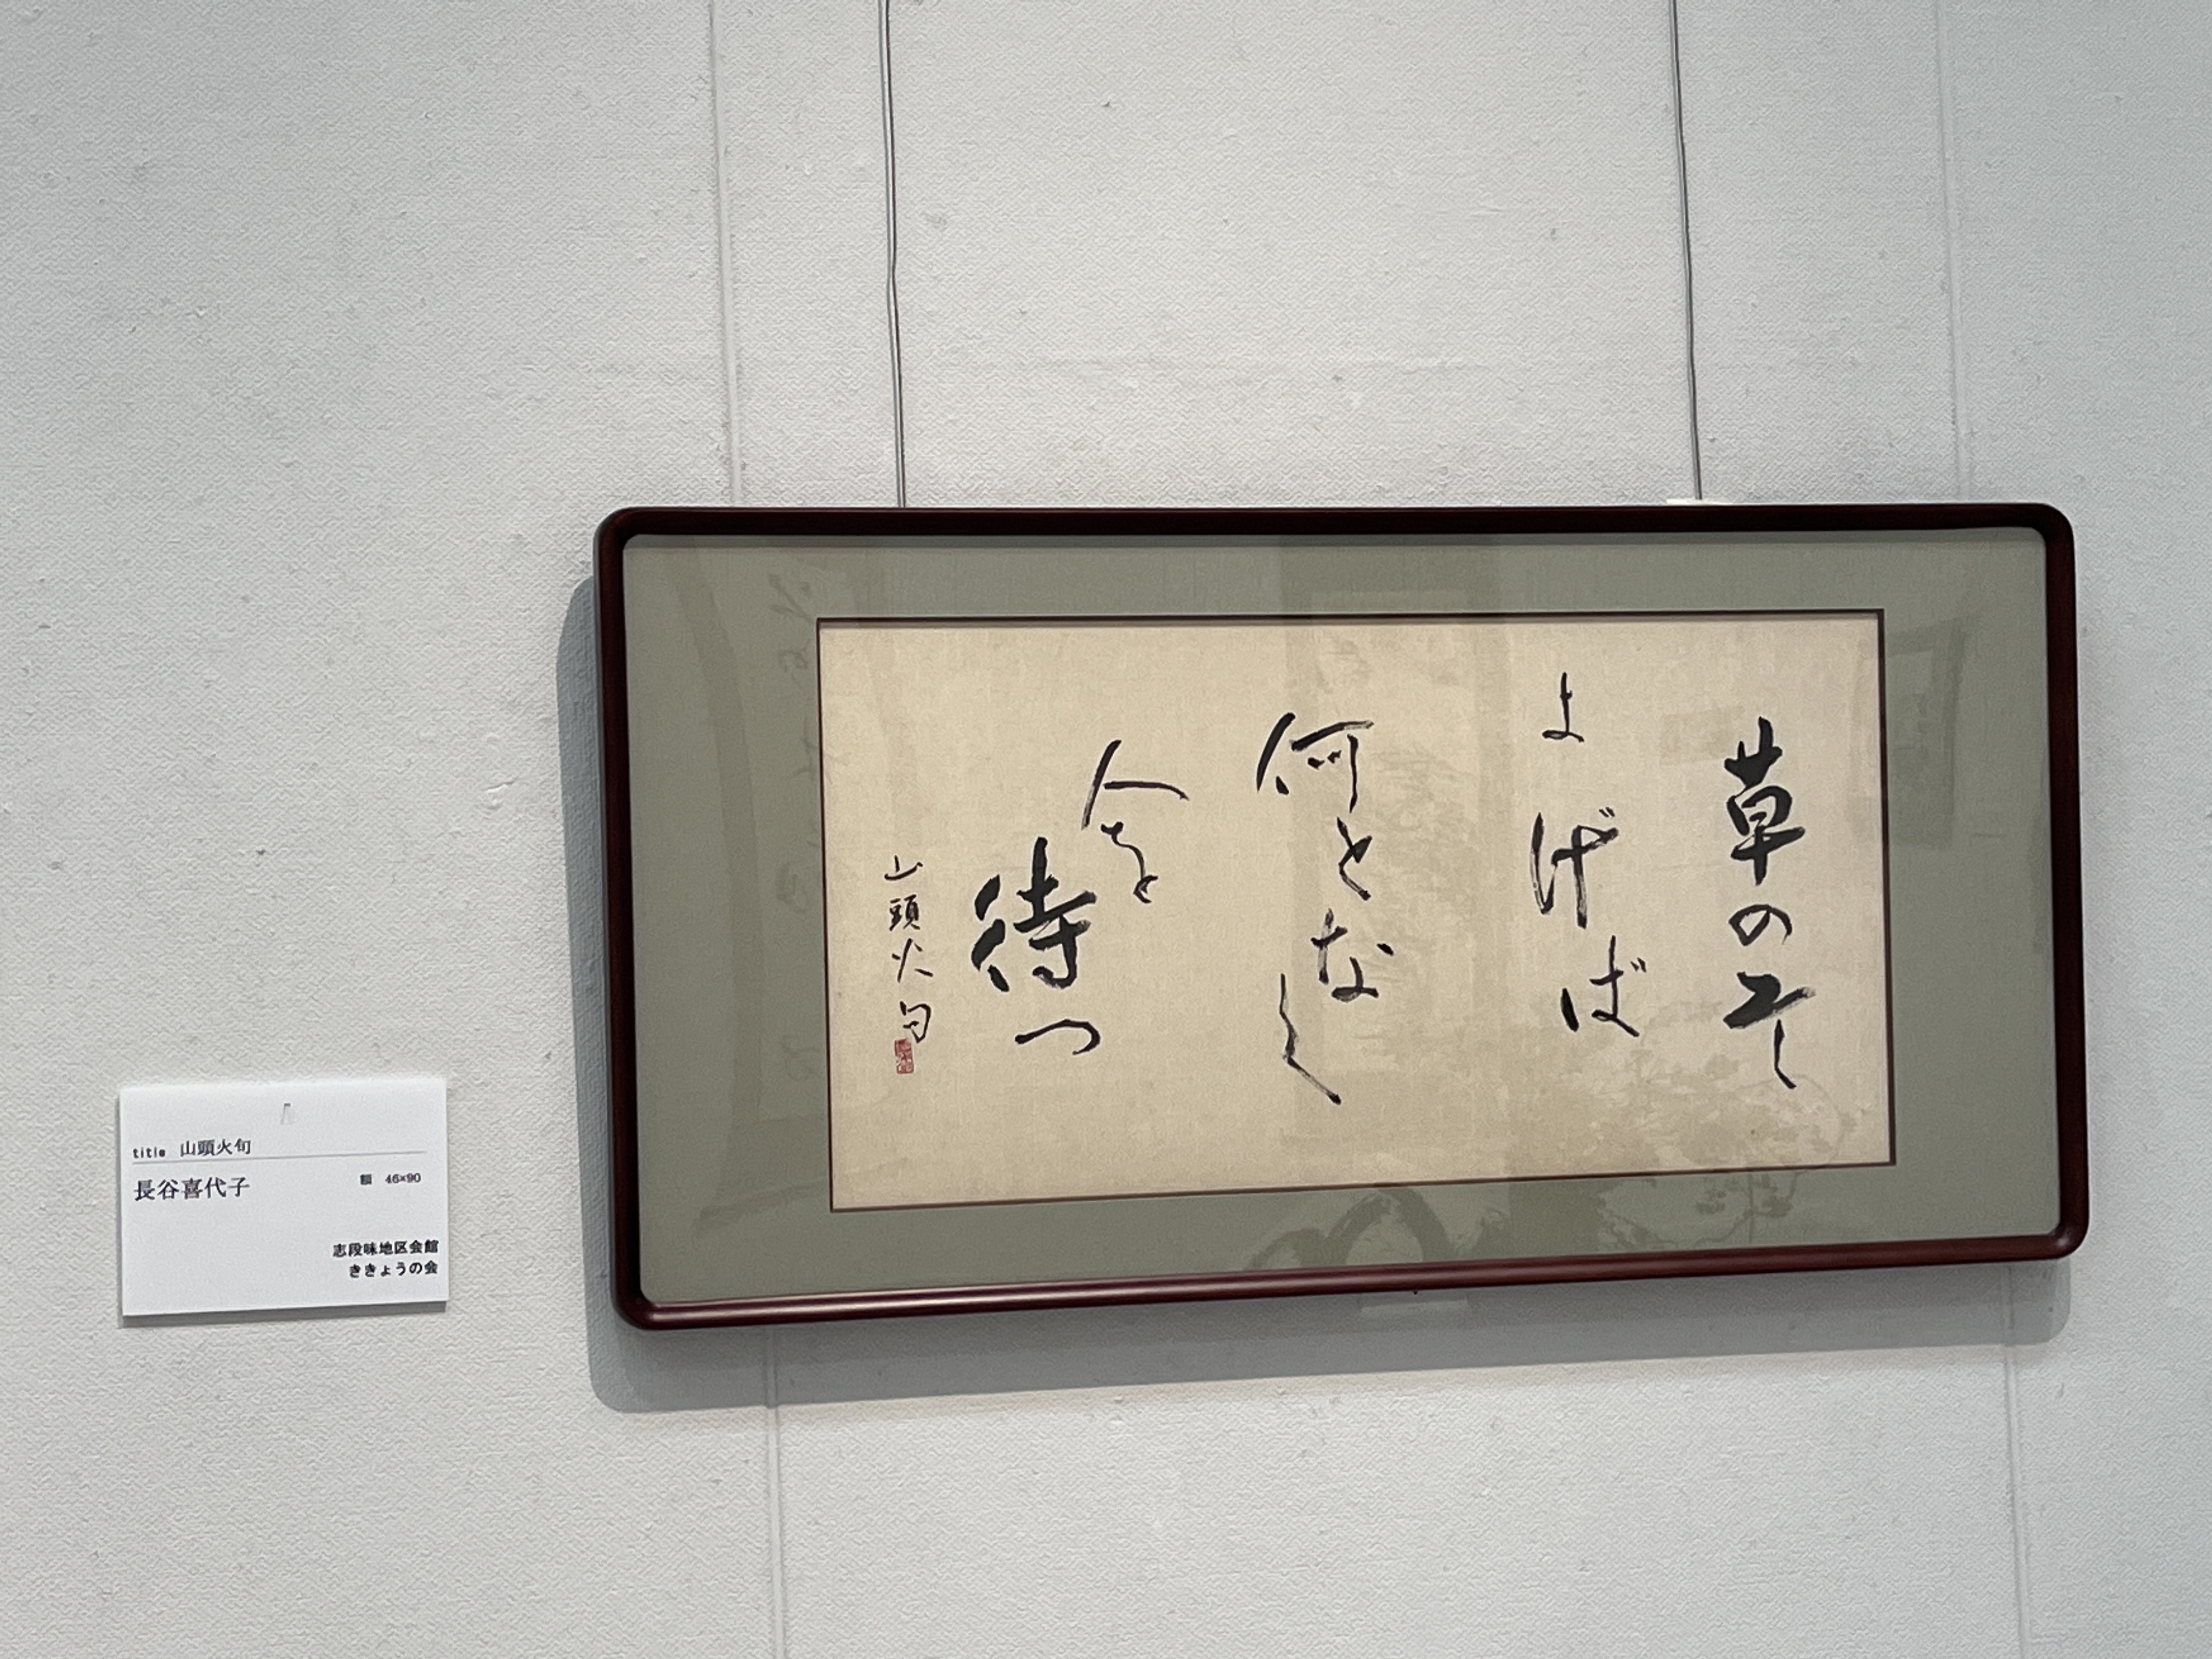 草のそ
よげば
何となく
人を
待つ
山頭火句
title 山頭火句
長谷喜代子
額 46×90
志段味地区会館
ききょうの会